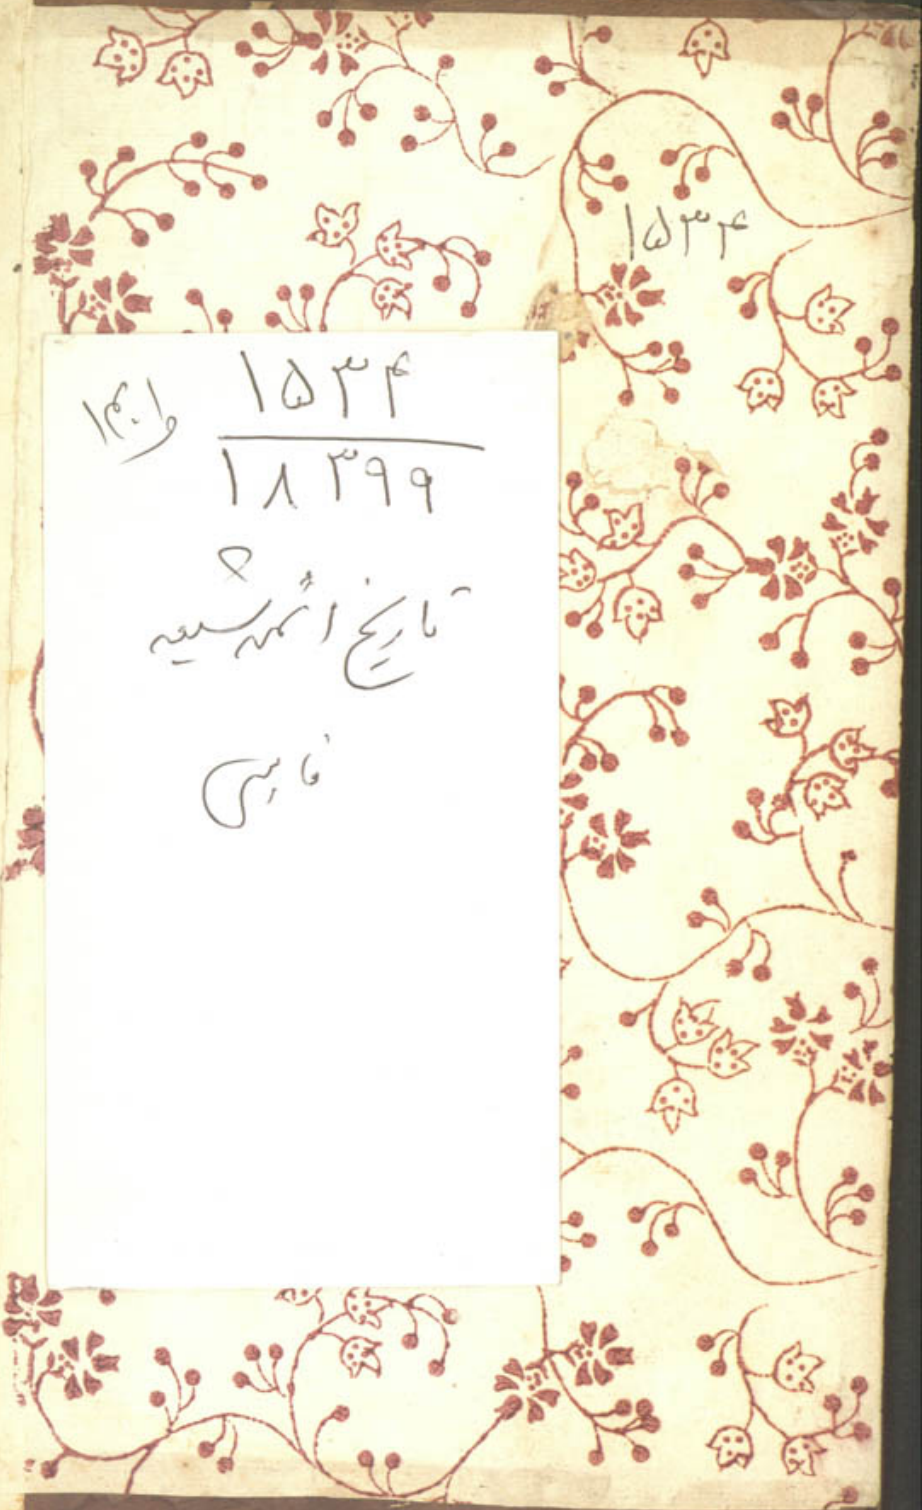 ۱۵۳۴
۱۵۳۴
۱۸۳۹۹
تاریخ ائمه شیعه
فارسی